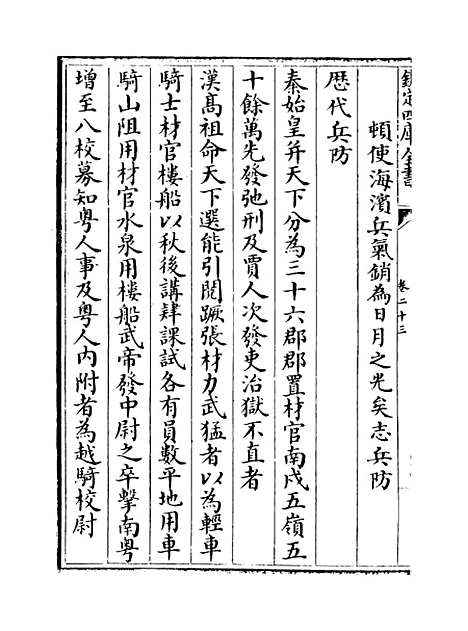 欽定四庫全書
卷二十三
頓使海濱兵氣銷為日月之光矣志兵防
歴代兵防
秦始皇并天下分為三十六郡郡置材官南戍五嶺五
十餘萬先發弛刑及賈人次發吏治獄不直者
漢髙祖命天下選能引関蹶張材力武猛者以為輕車
騎士材官樓船以秋後講肄課試各有員數平地用車
騎山阻用材官水泉用樓船武帝發中尉之卒擊南粤
增至八校募知粤人事及粤人内附者為越騎校尉